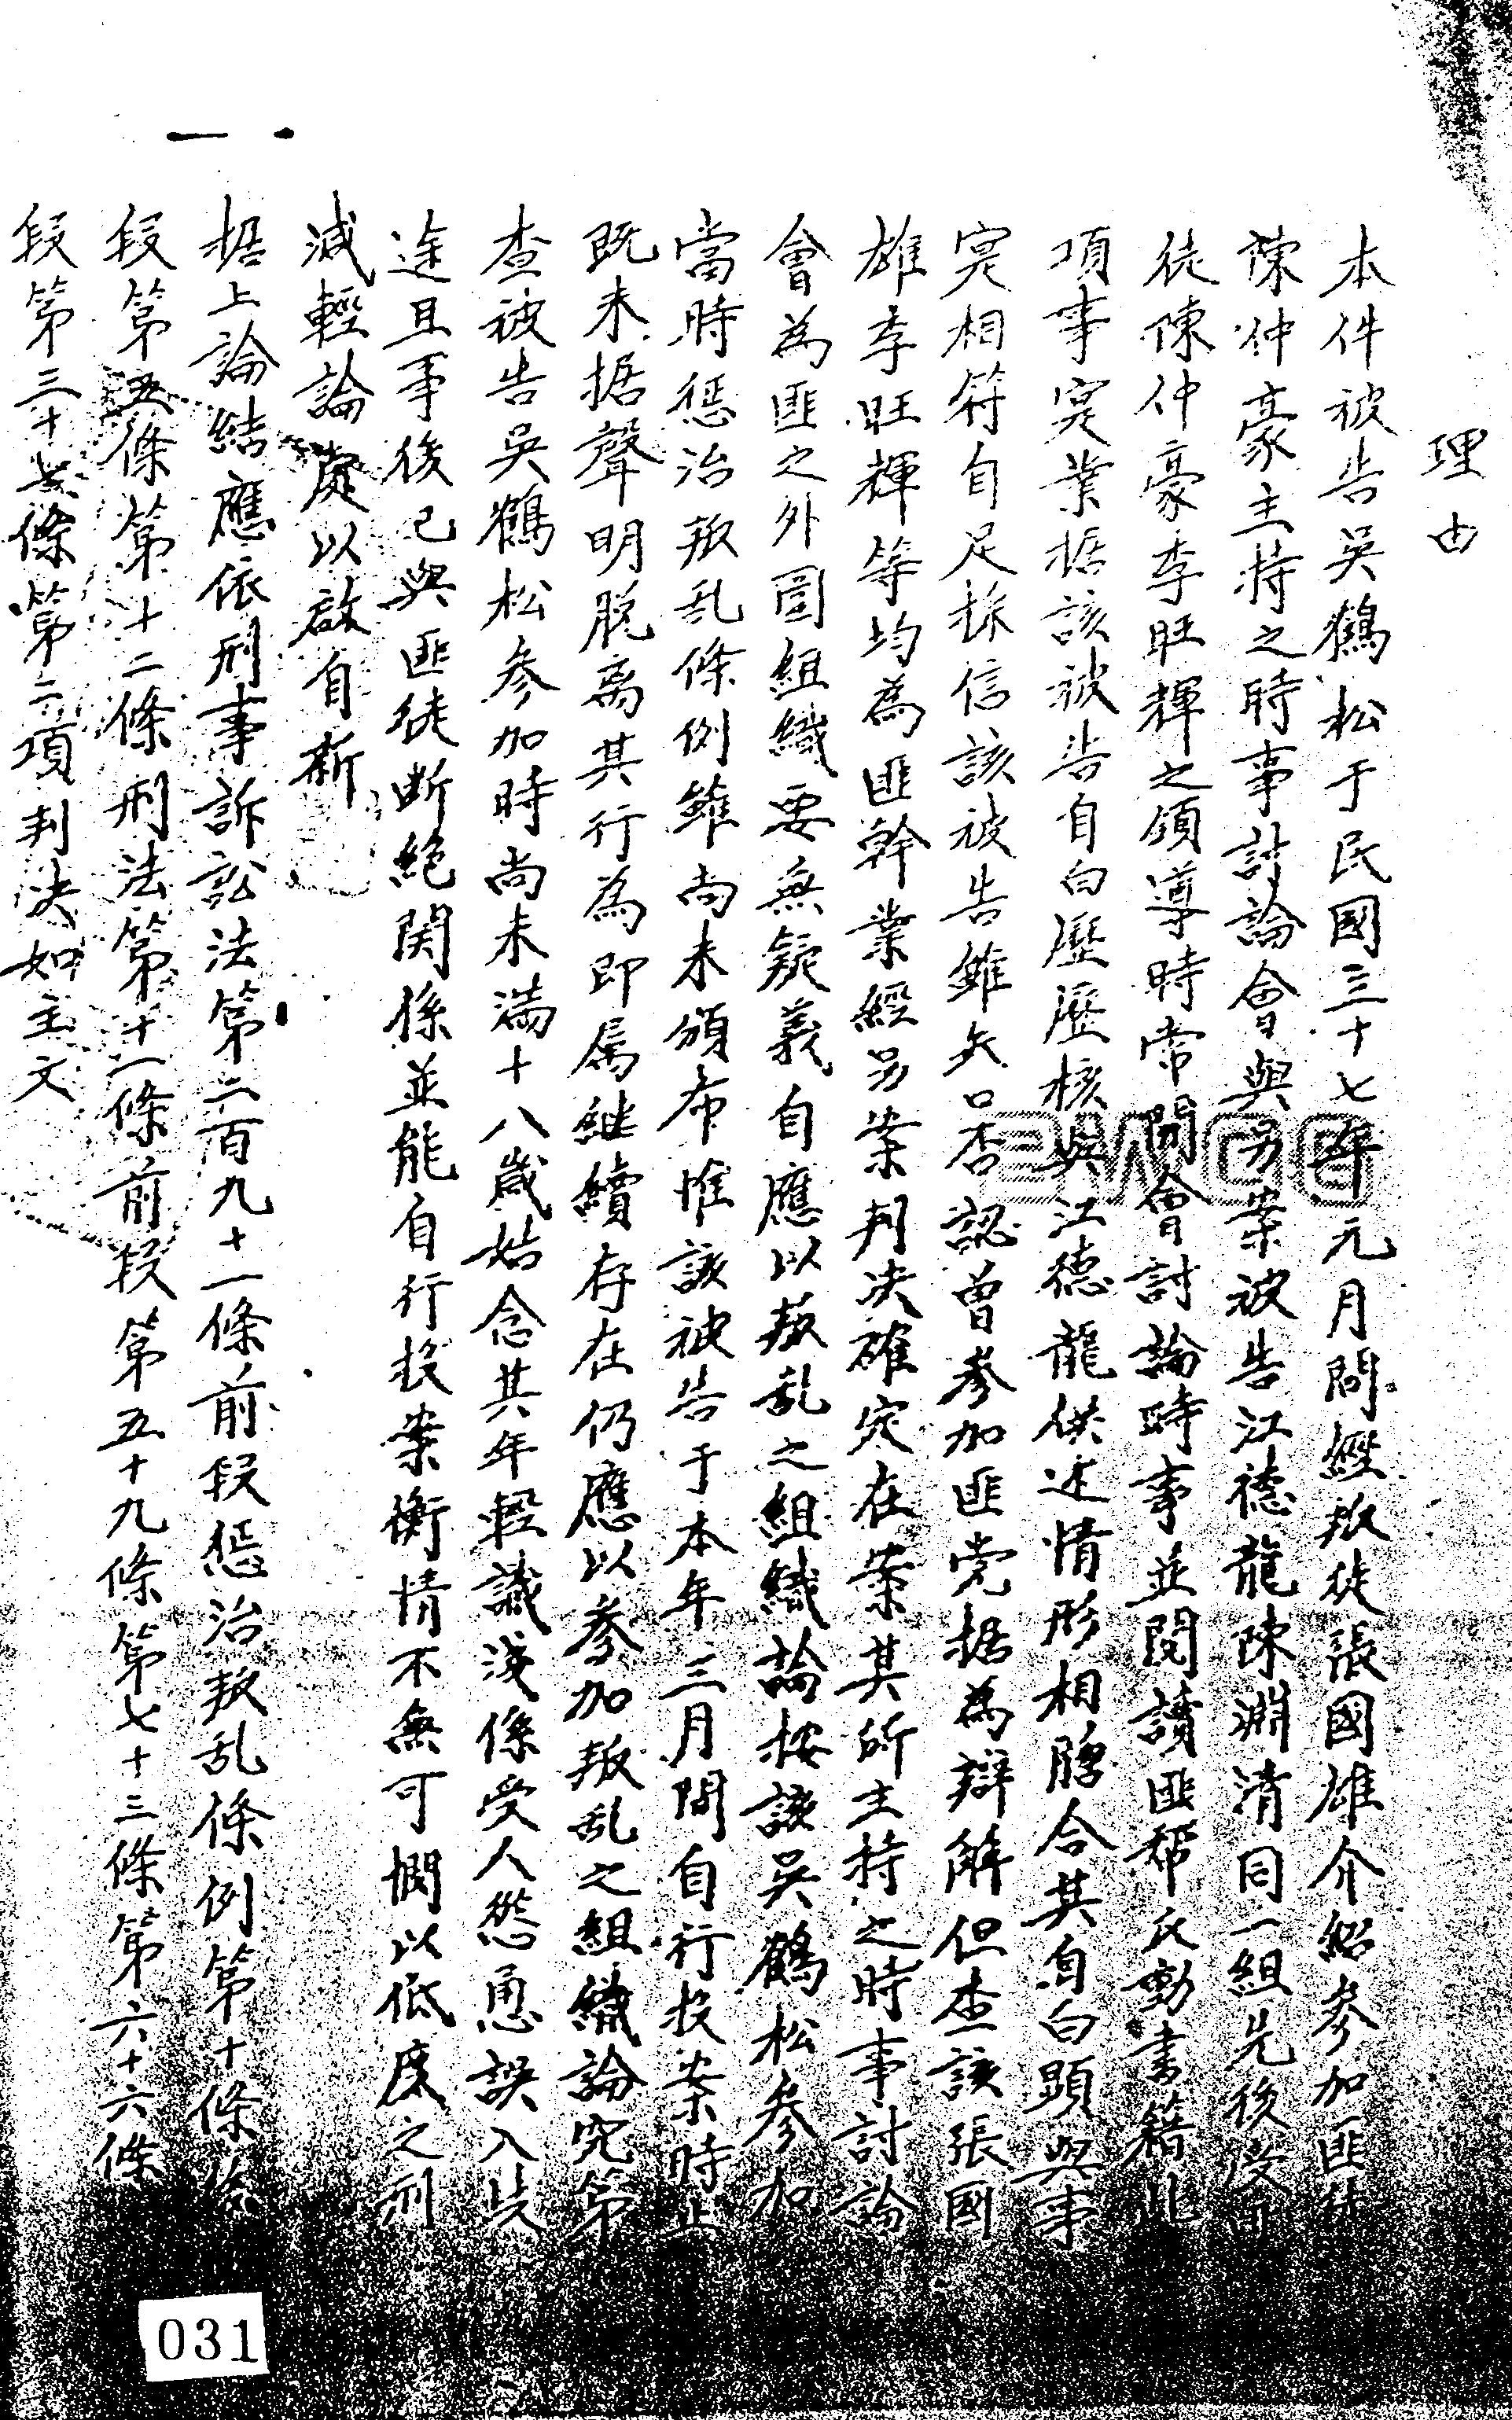 理由
本件被告吳鶴松于民國三十七年元月間經叛徒張國雄介紹參加匪徒
陳仲豪主持之時事討論會與另案被告江德龍陳淵清同一組先後受
徒陳仲豪李旺輝之領導時常開會討論時事並閱讀匪帮反動書籍此
項事実業据該被告自白歷歷核與江德龍供述情形相脗合其自白顕與事
実相符自足採信該被告雖矢口否認曾參加匪党据為辯解但查該張國
雄李旺輝等均為匪幹業經另案判决確定在案其所主持之時事討論
會為匪之外圍組織要無疑義自應以叛乱之組織論按該吳鶴松參加
當時惩治叛乱條例雖尚未頒布惟該被告于本年三月間自行投案時止
既未据聲明脫离其行為即属継續存在仍應以參加叛乱之組織論究第
查被告吳鶴松參加時尚未滿十八歲姑念其年輕識淺係受人慫恿誤入歧
途且事後已與匪徒断絕関係並能自行投案衡情不無可憫以低度之刑
減輕論處以啟自新
据上論結應依刑事訴訟法第二百九十一條前段惩治叛乱條例第十條後
段第五條第十二條刑法第十一條前段第五十九條第七十三條第六十六條
段第三十七條第二項判决如主文
031